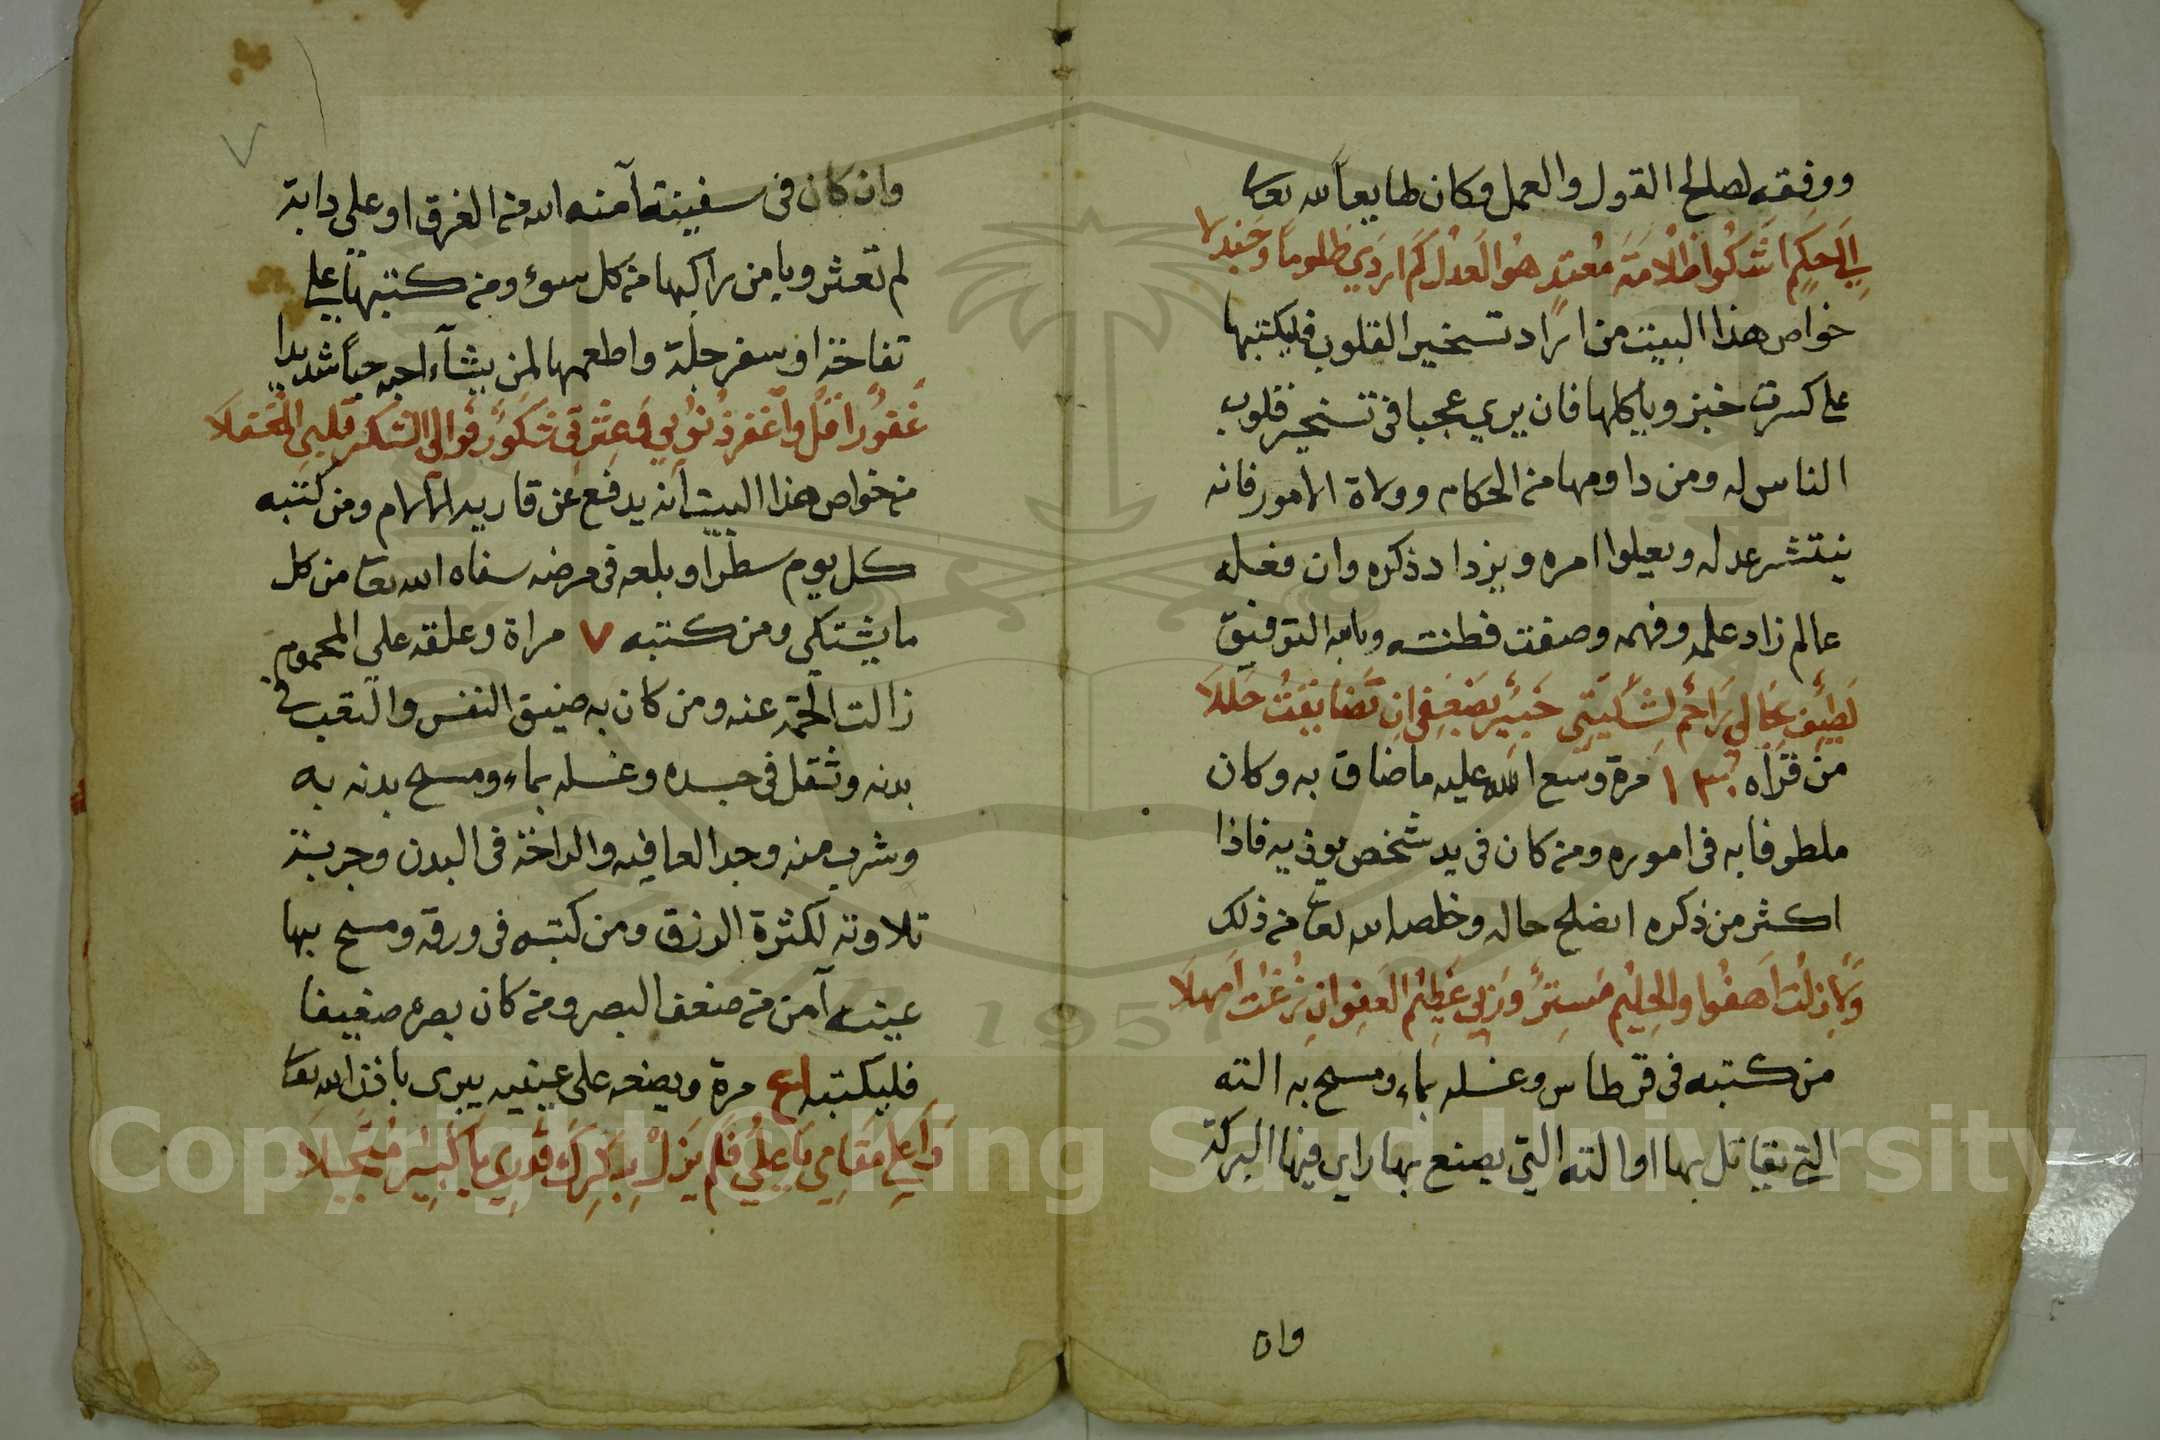 ووفقه لصالح القول والعمل وكان طايعاً لله تعا
الى حكم اشكوا ظلامة معتد هو العدل كم اردي ظلوما وجندلا
خواص هذا البيت من اراد تسخير القلوب فليكتبها
على كسرت خبز وياكلها فان يري عجبا في تسخير قلوب
الناس له ومن داومها من الحكام وولاة الامور فانه
ينتشر عدله ويعيلوا امره ويزداد ذكره وان فعله
عالم زاد علمه وفهمه وصفت فطنته وبالله التوفيق
لطيف بحالي راحم لشكيتي خبير بضعفي ان تضايقت حللا
من قراه ١٣٠ مرة وسع الله عليه ما ضاق به وكان
ملطوفا به في اموره ومن كان في يد شخص يوذيه فاذا
اكثر من ذكره انصلح حاله وخلصه الله تعا من ذلك
ولازلت اهفوا والحليم مستر وربي عظيم العفو ان زغت امهلا
من كتبه في قرطاس وغسله بماء ومسح به الته
التي يقاتل بها او الته التي يصنع بها راي فيها البركة
وان
٧
وان كان في سفينة آمنه الله من الغرق او على دابة
لم تعثر ويامن راكبها من كل سوء ومن كتبها على
تفاحة او سفرجلة واطعمها لمن يشآء احبه حباً شديدا
غفورا قل واغفر ذنوبي وعثرتي شكور فوالي الشكر قلبي
من خواص هذا البيت انه يدفع عن قاريه الآلام ومن كتبه
كل يوم سطراً وبلعه في مرضه سفاه الله تعا من كل
ما يشتكي ومن كتبه ٧ مراة وعلقه على المحموم
زالت الحمة عنه ومن كان به ضيق النفس والتعب في
بدنه وثقل في جسده وغسله بماء ومسح بدنه به
وشرب منه وجد العافيه والراحة في البدن وجربنة
تلاوته لكثرة الرزق ومن كتبه في ورقه ومسح بها
عينيه آمن من ضعف البصر ومن كان بصره ضعيفا
فليكتبه مرة ويضعه على عينيه يبرى باذن الله تعا
واعلي مقامي يا علي فلم يزل بذكرك قدري يا كبير مبجلا
Copyright © King Saud University
1957